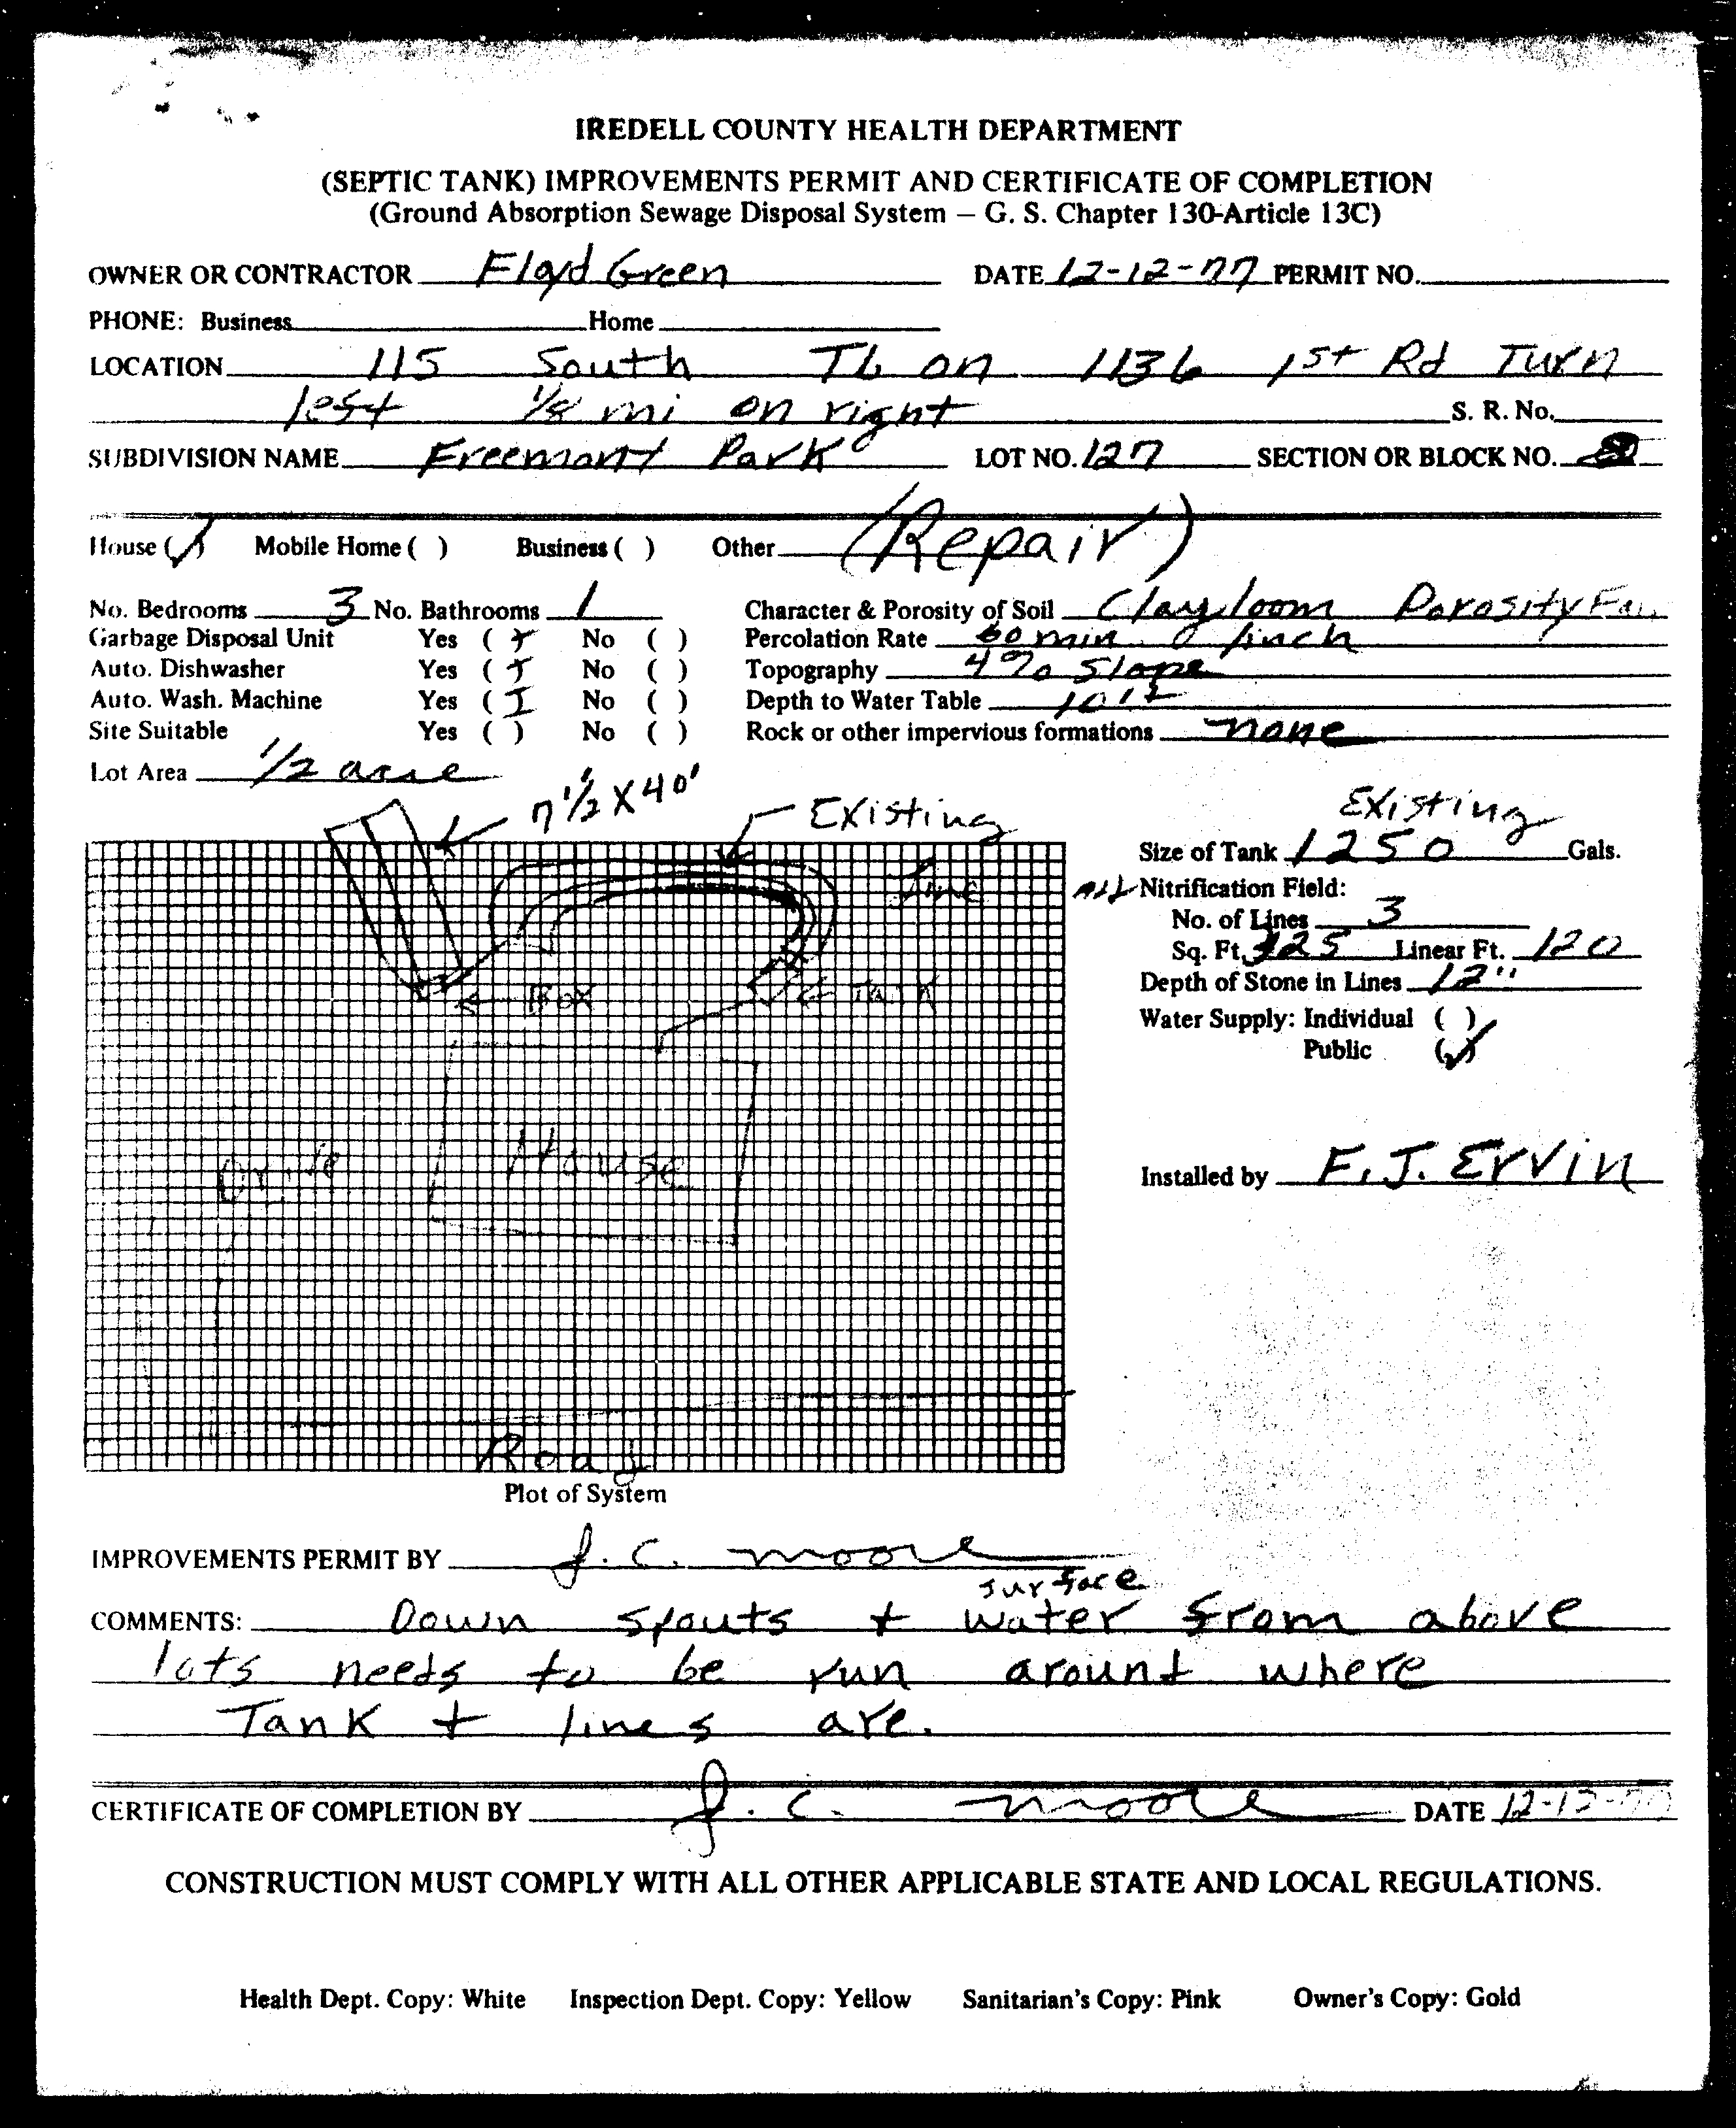 IREDELL COUNTY HEALTH DEPARTMENT
(SEPTIC TANK) IMPROVEMENTS PERMIT AND CERTIFICATE OF COMPLETION
(Ground Absorption Sewage Disposal System — G. S. Chapter 130-Article 13C)
OWNER OR CONTRACTOR Floyd Green DATE 12-12-77 PERMIT NO.
PHONE: Business Home
LOCATION 115 South TL on 1136 1st Rd Turn
left 1/8 mi on right S. R. No.
SUBDIVISION NAME Freemont Park LOT NO. 127 SECTION OR BLOCK NO.
House (✓) Mobile Home ( ) Business ( ) Other (Repair)
No. Bedrooms 3 No. Bathrooms 1 Character & Porosity of Soil Clay loom Porosity
Garbage Disposal Unit Yes ( ) No ( ) Percolation Rate 60 min / inch
Auto. Dishwasher Yes ( ) No ( ) Topography 4% Slope
Auto. Wash. Machine Yes ( ) No ( ) Depth to Water Table
Site Suitable Yes ( ) No ( ) Rock or other impervious formations none
Lot Area 1/2 acre
7 1/2 X 40'
Existing
Existing
Size of Tank 1250 Gals.
Line
All Nitrification Field:
No. of Lines 3
Sq. Ft. Linear Ft. 120
Box
Tank
Depth of Stone in Lines 12"
Water Supply: Individual ( )
Public (✓)
Drive
House
Installed by F. J. Ervin
Road
Plot of System
IMPROVEMENTS PERMIT BY J. C. Moore
surface
COMMENTS: Down spouts + water from above
lots needs to be run around where
Tank + lines are.
CERTIFICATE OF COMPLETION BY J. C. Moore DATE
CONSTRUCTION MUST COMPLY WITH ALL OTHER APPLICABLE STATE AND LOCAL REGULATIONS.
Health Dept. Copy: White Inspection Dept. Copy: Yellow Sanitarian's Copy: Pink Owner's Copy: Gold